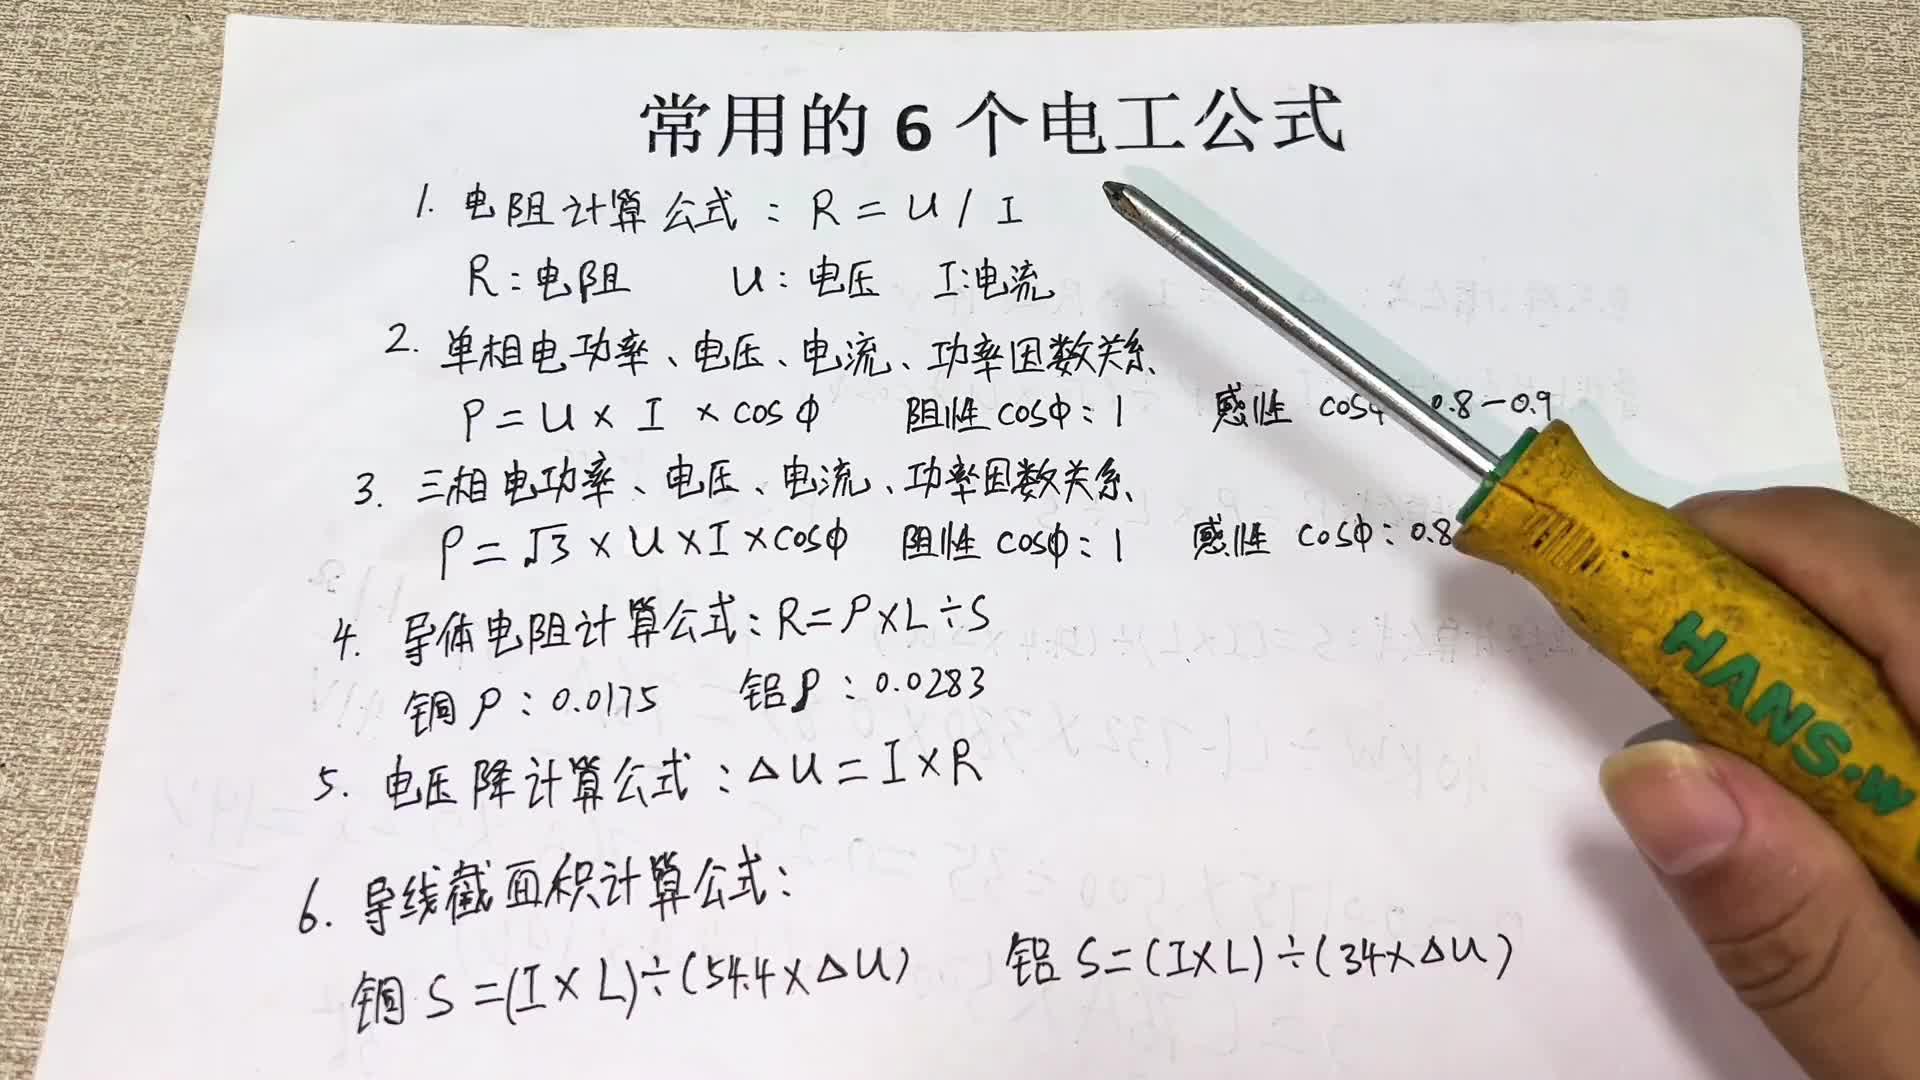 常用的6个电工公式
1. 电阻计算公式：R＝U/I
R：电阻 U：电压 I：电流
2. 单相电功率、电压、电流、功率因数关系
P＝U×I×cosφ 阻性cosφ：1 感性 cosφ 0.8－0.9
3. 三相电功率、电压、电流、功率因数关系
P＝√3×U×I×cosφ 阻性cosφ：1 感性 cosφ：0.8
4. 导体电阻计算公式：R＝ρ×L÷S
铜ρ：0.0175 铝ρ：0.0283
5. 电压降计算公式：△U＝I×R
6. 导线截面积计算公式：
铜 S＝(I×L)÷(54.4×△U) 铝 S＝(I×L)÷(34×△U)
HANS·W